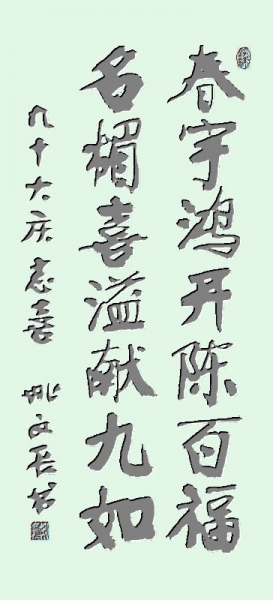 春宇鸿开陈百福
名楣喜溢献九如
九十大庆志喜 姚文长书